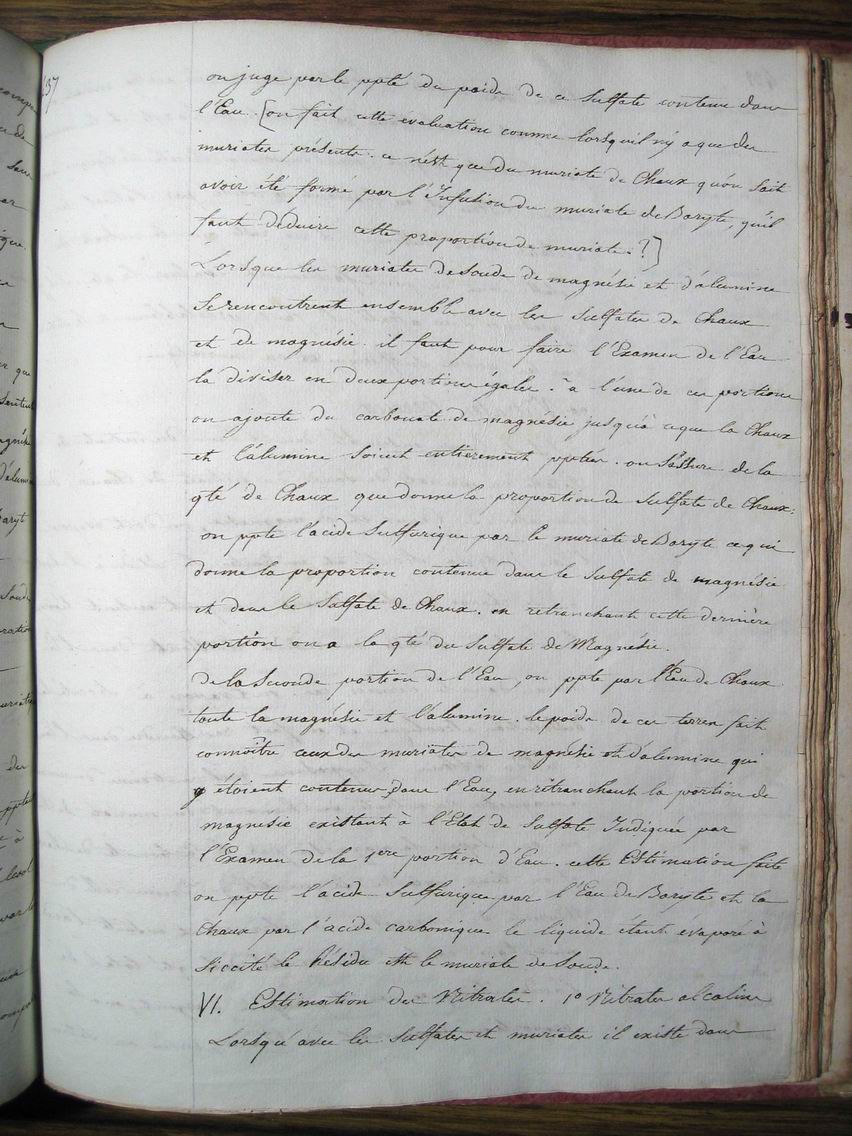 on juge par le ppté du poids de ce Sulfate contenu dans
l'Eau. [on fait cette évaluation comme lorsquil n'y a que des
muriates présents. ce n'est que du muriate de Chaux qu'on sait
avoir été formé par l' du muriate de Baryte, qu'il
faut déduire cette proportion de muriate. ?]
Lorsque les muriates de Soude de magnésie et d'alumine
se rencontrent ensemble avec les Sulfates de Chaux
et de magnésie. il faut pour faire l'Examen de l'Eau
la diviser en deux portions égales. à l'une de ces portions
on ajoute du carbonate de magnésie jusqu'à ceque la Chaux
et l'alumine soient entierement pptées. on s'assure de la
qté de Chaux que donne la proportion de Sulfate de Chaux:
on ppte l'acide Sulfurique par le muriate de Baryte ce qui
donne la proportion contenue dans le Sulfate de magnésie
et dans le Sulfate de Chaux. en retranchant cette dernière
portion on a la qté du Sulfate de Magnésie.
de la Seconde portion de l'Eau, on ppte par l'Eau de Chaux
toute la magnésie et l'alumine. le poids de ces terres fait
connoître ceux des muriates de magnésie et d'alumine qui
y étoient contenus dans l'Eau, en retranchant la portion de
magnésie existant à l'Etat de Sulfate Indiquée par
l'Examen de la 1ere portion d'Eau. cette Estimation faite
on ppte l'acide Sulfurique par l'Eau de Baryte et la
Chaux par l'acide carbonique le liquide étant évaporé à
Siccité le Résidu est le muriate de Soude.
VI. Estimation des Nitrates. 1o Nitrates alcalins
Lorsqu'avec les Sulfates et muriates il existe dans